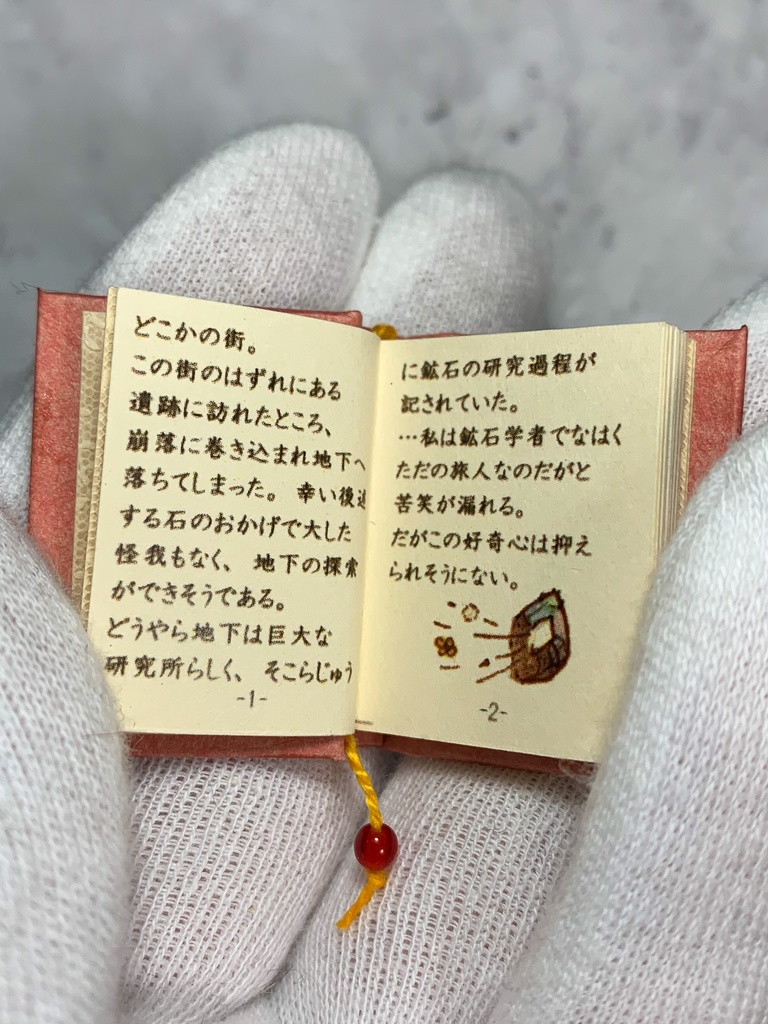 どこかの街。
この街のはずれにある
遺跡に訪れたところ、
崩落に巻き込まれ地下へ
落ちてしまった。 幸い後退
する石のおかげで大した
怪我もなく、 地下の探索
ができそうである。
どうやら地下は巨大な
研究所らしく、 そこらじゅう
-1-
に鉱石の研究過程が
記されていた。
…私は鉱石学者でなはく
ただの旅人なのだがと
苦笑が漏れる。
だがこの好奇心は抑え
られそうにない。
-2-